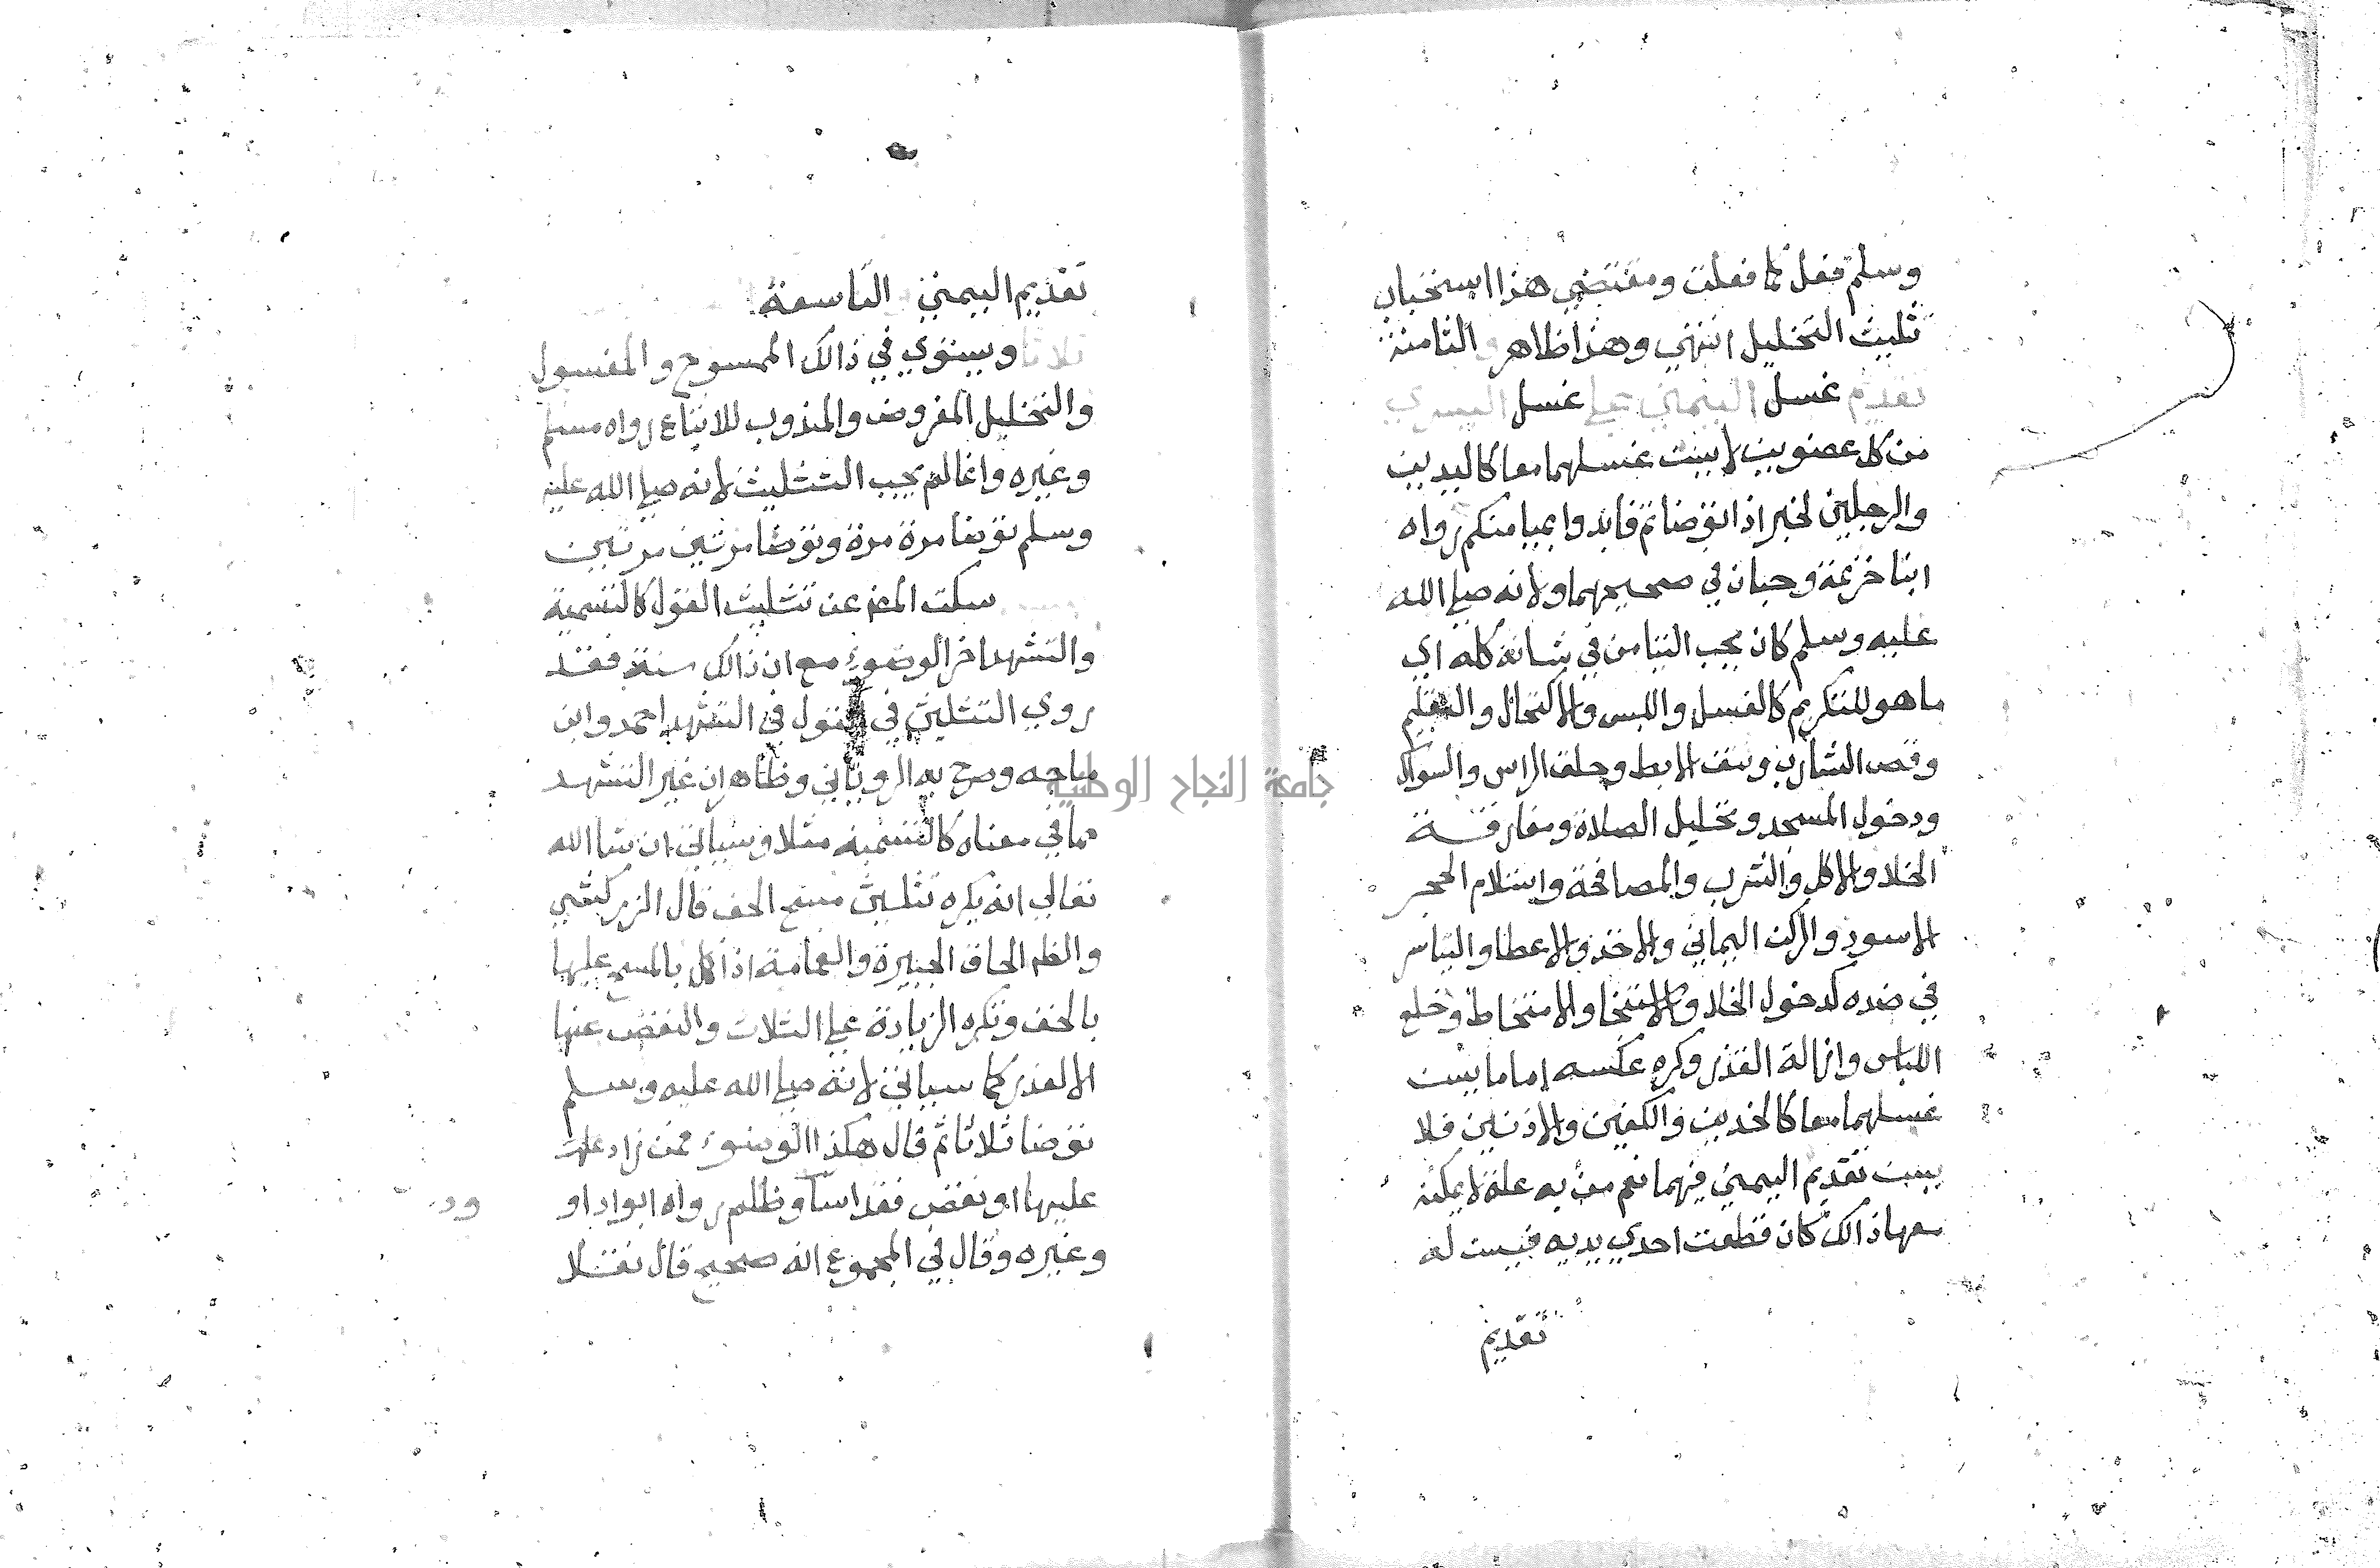 وسلم فعل كما فعلت ومقتضي هذا استحباب
تثليث التخليل انتهي وهذا ظاهر و الثامنة
تقديم غسل اليمني علي غسل اليسري
من كل عضوين لا يسن غسلهما معا كاليدين
والرجلين لخبر اذا توضاتم فابدوا بميامنكم رواه
ابنا خزيمة وحبان في صحيحهما ولانه صلي الله
عليه وسلم كان يحب التيامن في شانه كله اي
ما هو للتكريم كالغسل واللبس والاكتحال والتقليم
وقص الشارب ونتف الابط وحلق الراس والسواك
ودخول المسجد وتحليل الصلاة ومفارقة
الخلا والاكل والشرب والمصافحة واستلام الحجر
الاسود والركن اليماني والاخذ والاعطا والتياسر
في ضده كدخول الخلا والاستنجا والامتخاط وخلع
اللباس وازالة القذر وكره عكسه اما ما يسن
غسلهما معا كالخدين والكفين والاذنين فلا
يسن تقديم اليمني فيهما نعم من به علة لا يمكنه
معها ذالك كان قطعت احدي يديه فيسن له
تقديم
تقديم اليمني التاسعة
ثلاثا ويستوي في ذالك الممسوح والمغسول
والتخليل المفروض والمندوب للاتباع رواه مسلم
وغيره وانما لم يجب التثليث لانه صلي الله عليه
وسلم توضا مرة مرة وتوضا مرتين مرتين
سكت المص عن تثليث القول كالتسمية
والتشهد اخر الوضوء مع ان ذالك سنة فقد
روي التثليث في القول في التشهد احمد وابن
ماجه وصرح به الروياني وظاهر ان غير التشهد
مما في معناه كالتسمية مثلا وسياتي ان شا الله
تعالي انه يكره تثليث مسح الخف قال الزركشي
والظ الحاق الجبيرة والعمامة اذا كمل بالمسح عليها
بالخف وتكره الزيادة علي الثلاث والنقص عنها
الا لعذر كما سياتي لانه صلي الله عليه وسلم
توضا ثلاثا ثم قال هكذا الوضوء فمن زاد على
عليها او نقص فقد اسا وظلم رواه ابو داود
وغيره وقال في المجموع انه صحيح قال نقلا
جامعة النجاح الوطنية